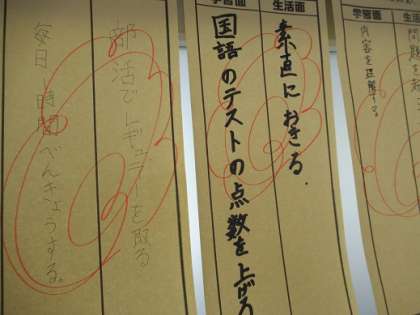 学習面
問題を
内容を理解する。
生活面
素直におきる.
学習面
国語のテストの点数を上げる
部活でレギュラーを取る
毎日一時間べんきょうする。